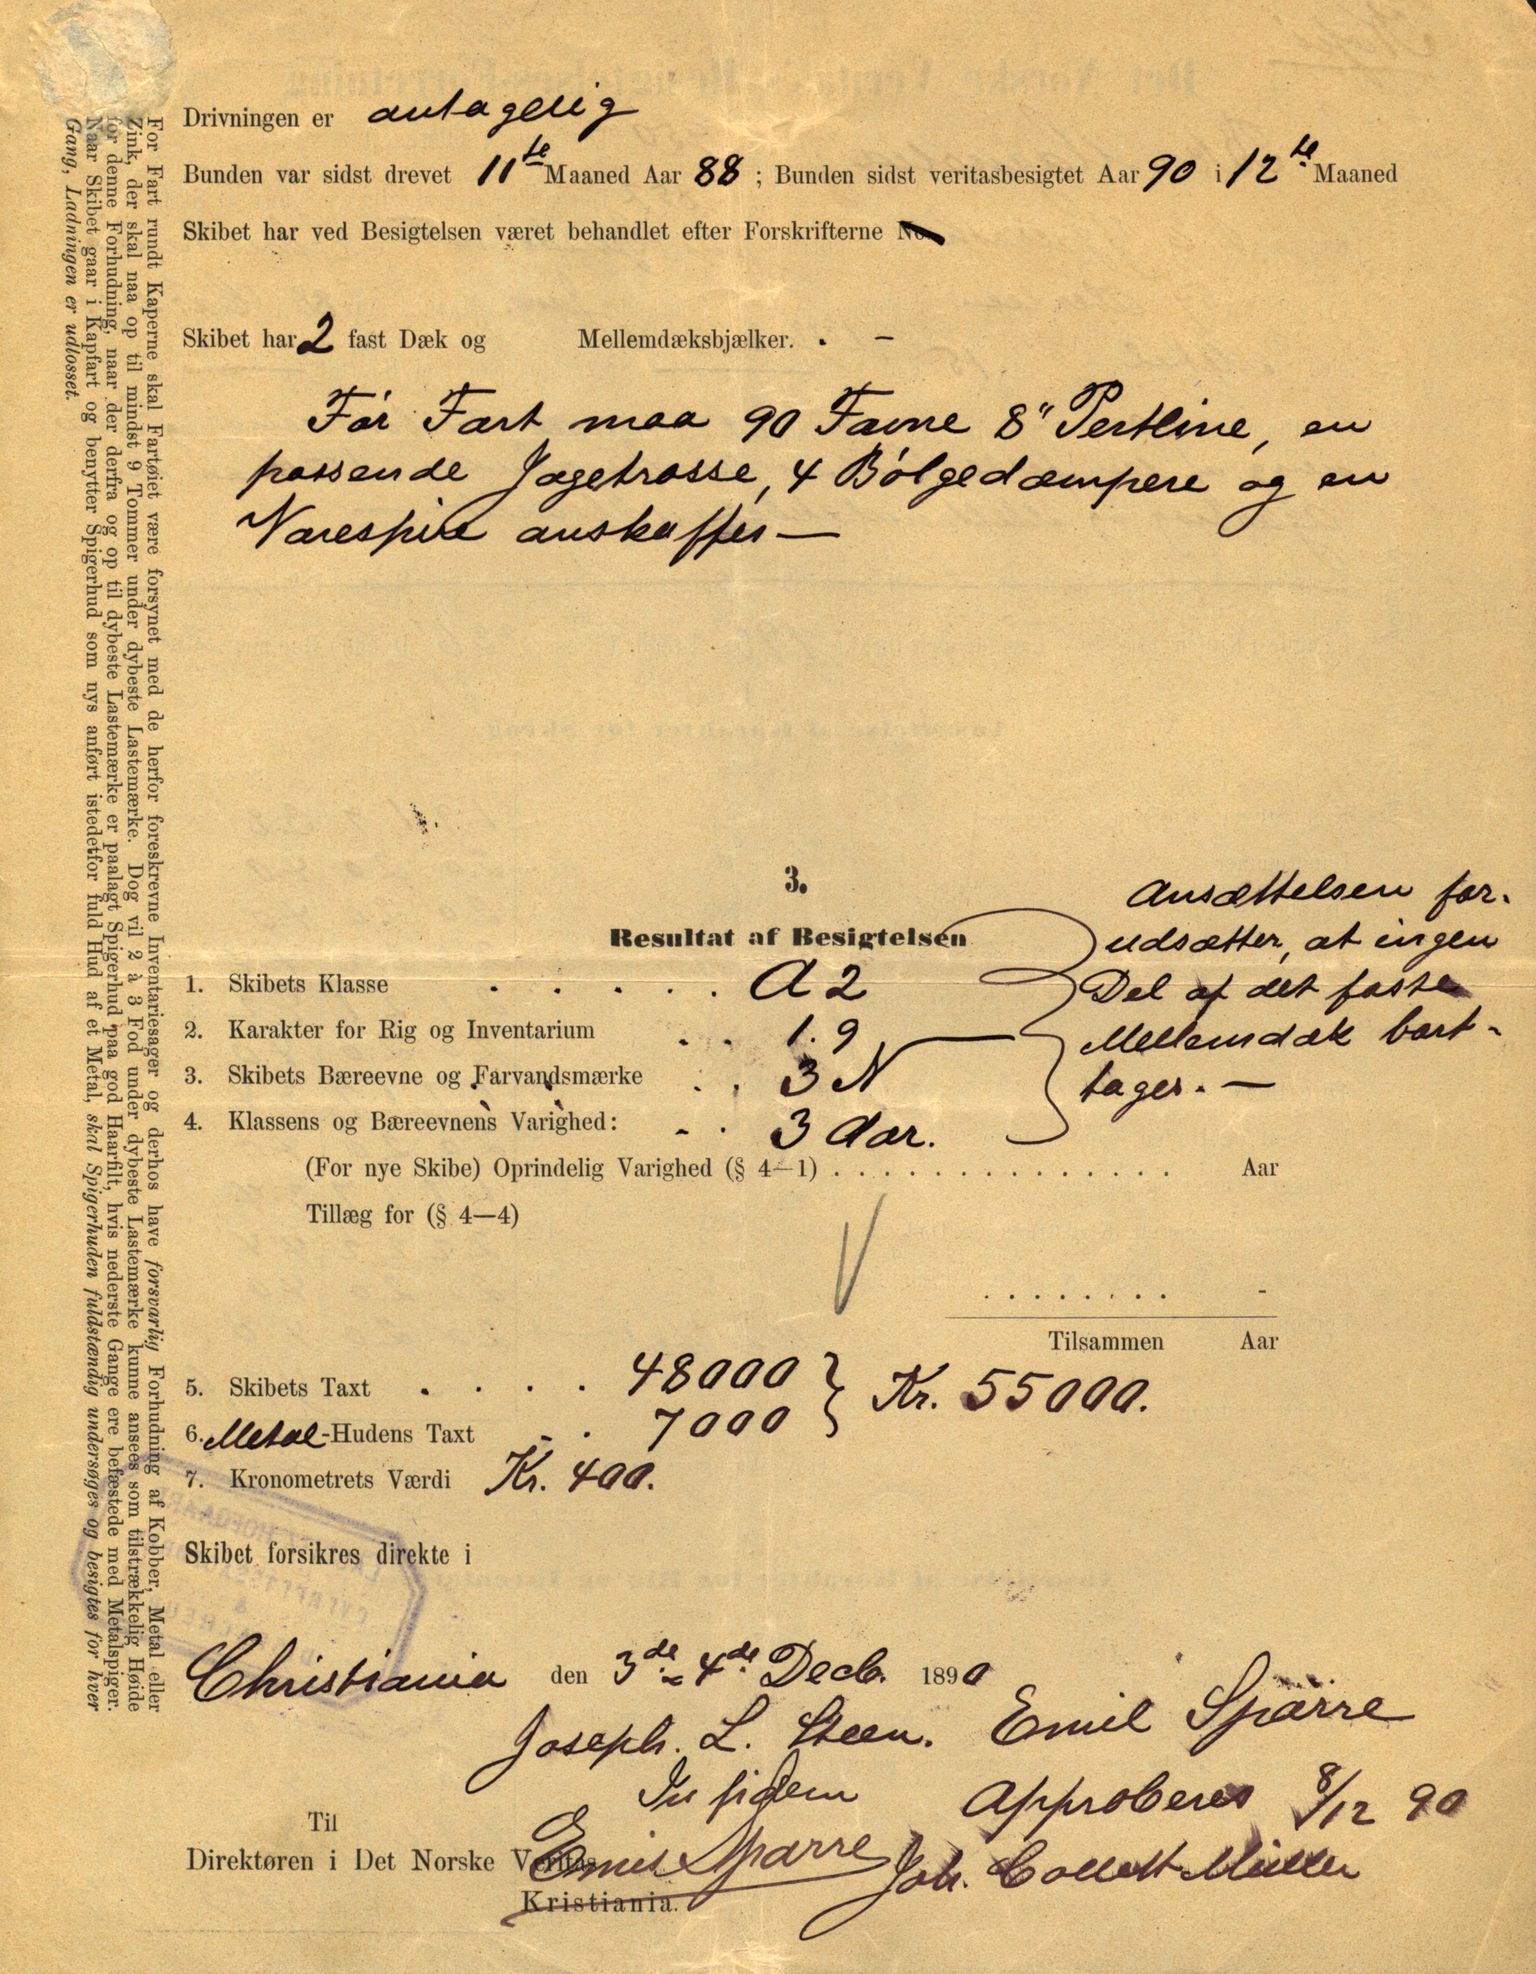 Drivningen er antagelig
Bunden var sidst drevet 11te Maaned Aar 88 ; Bunden sidst veritasbesigtet Aar 90 i 12te Maaned
Skibet har ved Besigtelsen været behandlet efter Forskrifterne No.
Skibet har 2 fast Dæk og Mellemdæksbjælker. . –
Før Fart maa 90 Favne 8" Pertline, en
passende Jagetrosse, 4 Bølgedæmpere og en
Varespire anskaffes —
3.
Resultat af Besigtelsen
1. Skibets Klasse . . . . . A 2
2. Karakter for Rig og Inventarium . . 1.9
3. Skibets Bæreevne og Farvandsmærke . . 3 N
4. Klassens og Bæreevnens Varighed: . . 3 Aar.
Ansættelsen for-
udsætter, at ingen
Del af det faste
Mellemdæk bort-
tages. —
(For nye Skibe) Oprindelig Varighed (§ 4—1) . . . . . . . . . . . . . . . Aar
Tillæg for (§ 4—4)
. . . . . . . . -
Tilsammen Aar
5. Skibets Taxt . . . . 48000
6. Metal-Hudens Taxt . . 7000
Kr. 55000.
7. Kronometrets Værdi Kr. 400.
Skibet forsikres direkte i
Christiania den 3de = 4de Decb. 1890
Joseph. L. Steen. Emil Sparre
In fidem
Emil Sparre
Approberes 8/12 90
Joh. Collett Müller
Til
Direktøren i Det Norske Veritas
Kristiania.
For Fart rundt Kaperne skal Fartøiet være forsynet med de herfor foreskrevne Inventariesager og derhos have forsvarlig Forhudning af Kobber, Metal eller
Zink, der skal naa op til mindst 9 Tommer under dybeste Lastemærke. Dog vil 2 à 3 Fod under dybeste Lastemærke kunne ansees som tilstrækkelig Høide
for denne Forhudning, naar der derfra og op til dybeste Lastemærke er paalagt Spigerhud paa god Haarfilt, hvis nederste Gange ere befæstede med Metalspiger.
Naar Skibet gaar i Kapfart og benytter Spigerhud som nys anført istedetfor fuld Hud af et Metal, skal Spigerhuden fuldstændig undersøges og besigtes for hver
Gang, Ladningen er udlosset.